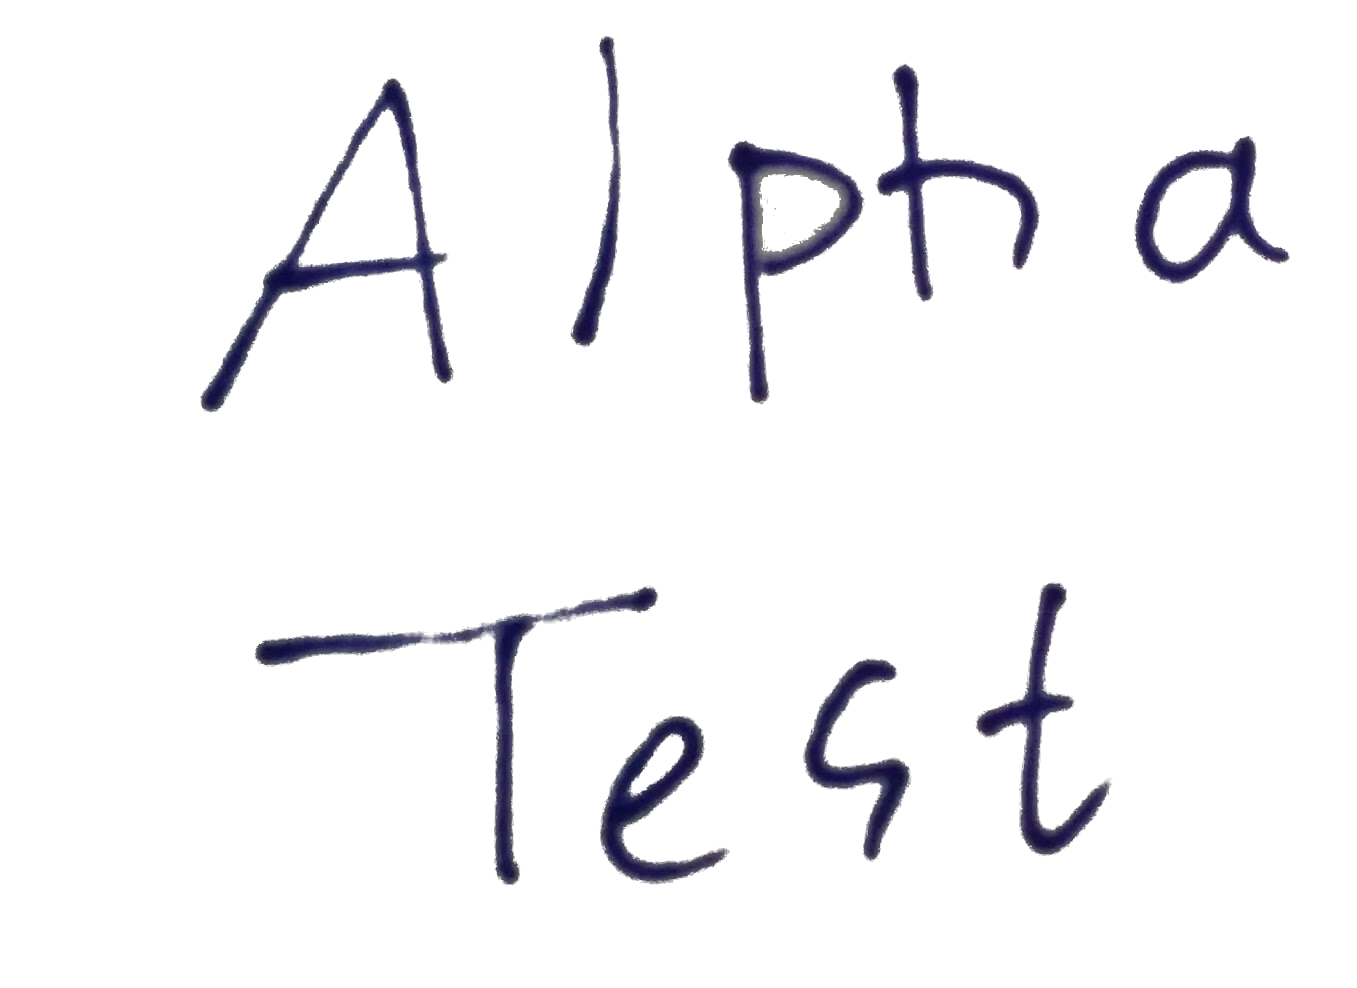 Alpha
Test